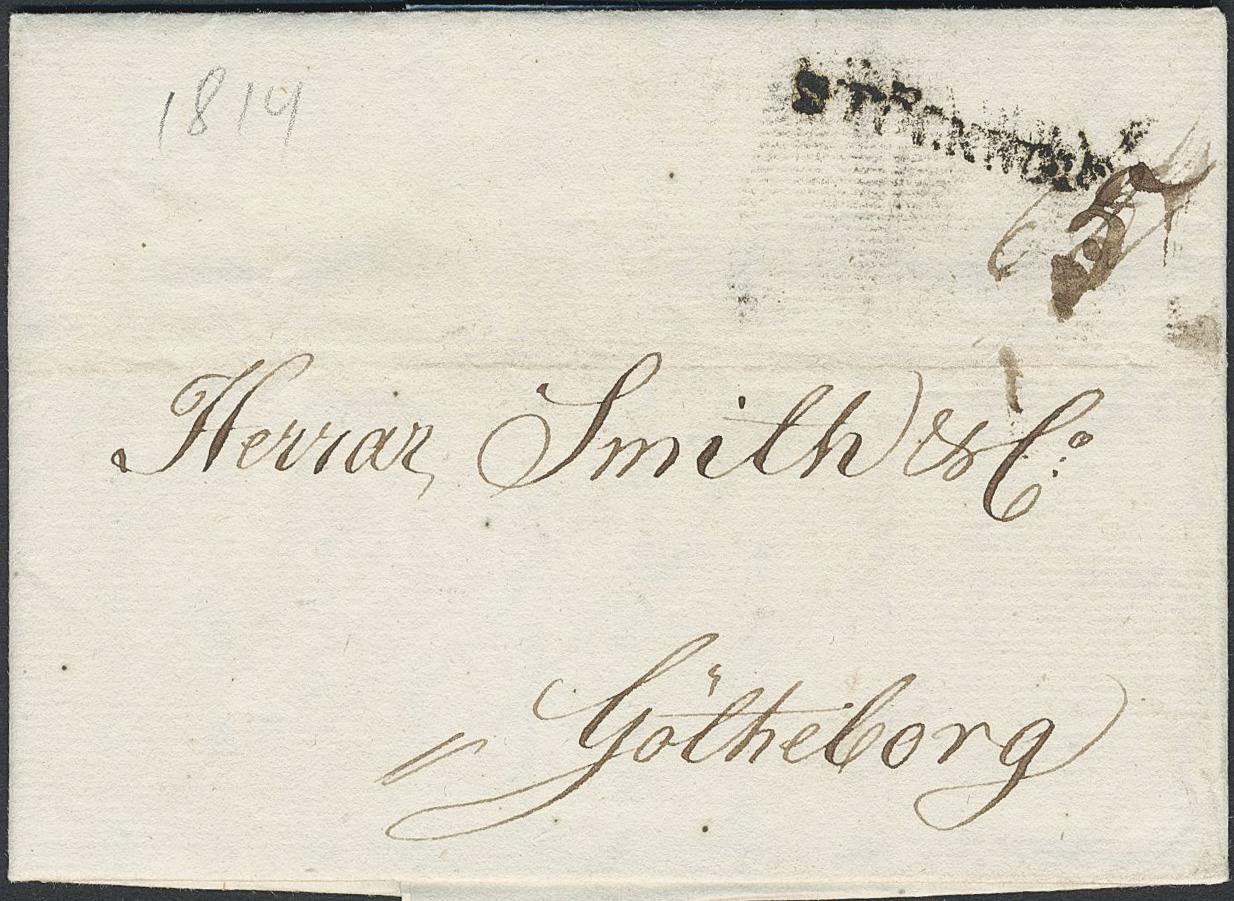 1814
STOCKHOLM
Herrar Smith & Co.
Götheborg